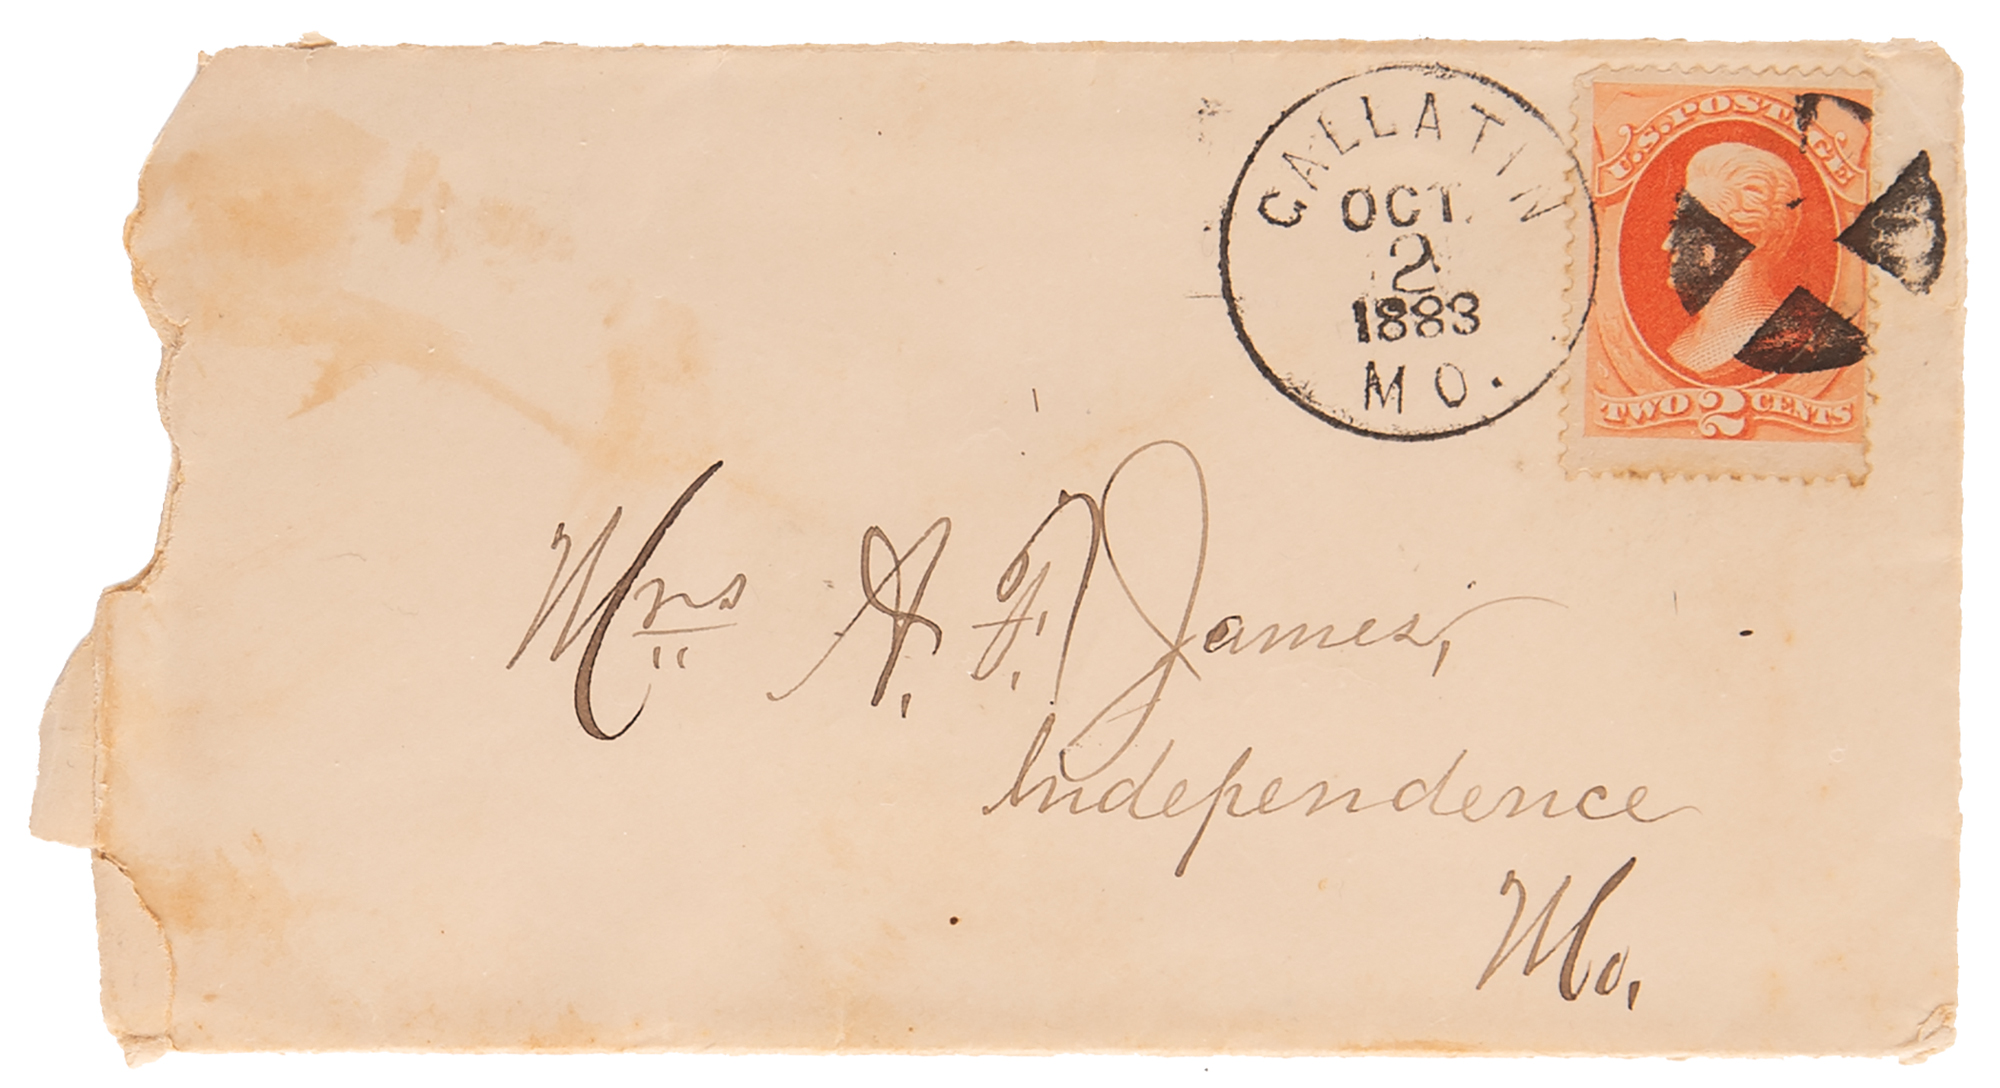 GALLATIN
OCT.
2
1883
MO.
U.S. POSTAGE
TWO 2 CENTS
Mrs A. F. James,
Independence
Mo.